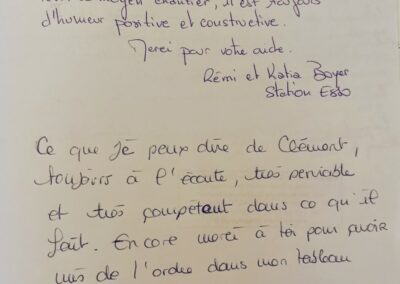 moyen chantier, il est toujours
d'humeur positive et constructive.
Merci pour votre aide.
Rémi et Katia Boyer
Station Esso
Ce que je peux dire de Clément,
toujours à l'écoute, très serviable
et très compétent dans ce qu'il
fait. Encore merci à toi pour avoir
mis de l'ordre dans mon tableau